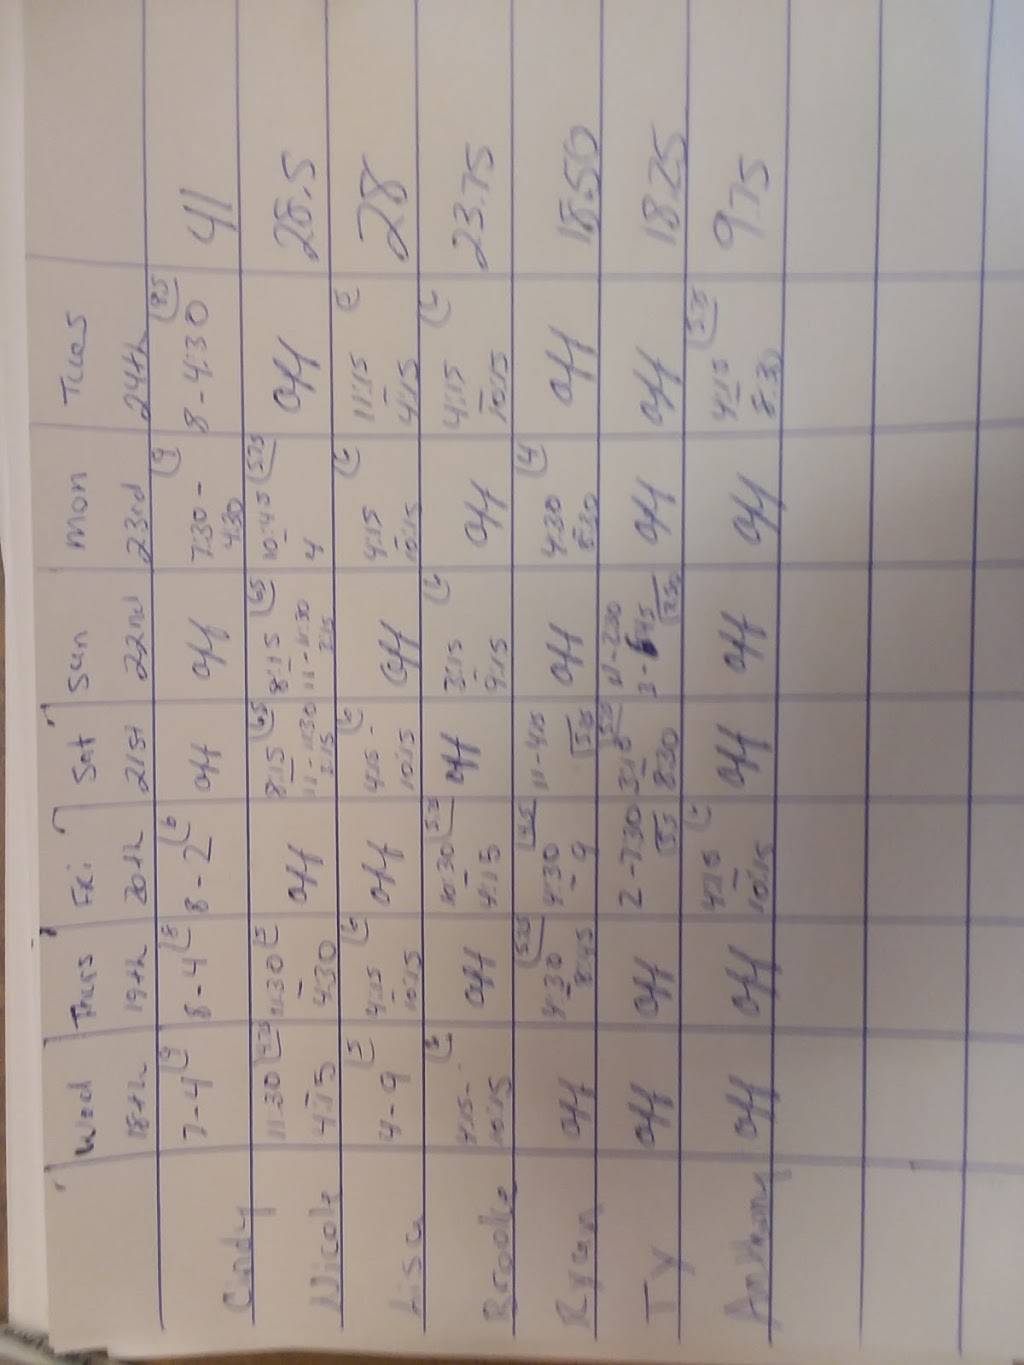 Wed Thurs Fri Sat Sun Mon Tues
18th 19th 20th 21st 22nd 23rd 24th
Cindy 7-4 9 8-4 8 8-2 6 off off 7:30-4:30 9 8-4:30 41
Nicole 11:30-4:15 11:30-4:30 5 off 8:15 11-11:30 8:15 11-11:30 10:45-4 5.75 off 28.5
Lisa 4-9 5 4:15-10:15 6 off 4:15-10:15 6 off 4:15-10:15 6 11:15-4:15 5 28
Brooke 4:15-10:15 6 off 10:30-4:15 5.75 off 3:15-9:15 6 off 4:15-10:15 6 23.75
Ryan off 4:30-8:45 4:30-9 4.5 11-4:15 off 4:30-8:30 4 off 18.50
Ty off off 2-7:30 5.5 8:30 off off 18.25
Anthony off off 4:15-10:15 off off off 4:15-8:30 9.75